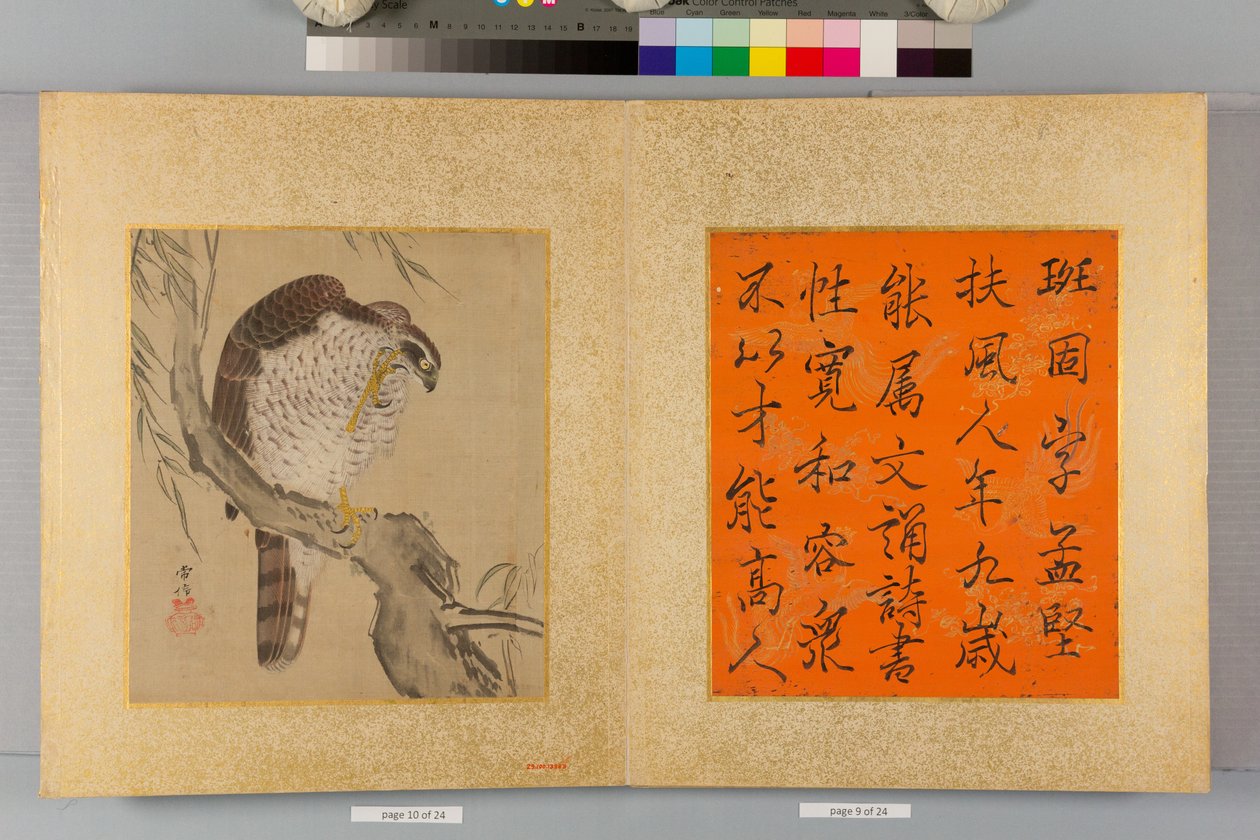 by Scale
3 4 5 6 M 8 9 10 11 12 13 14 15 B 17 18 19
Kodak Color Control Patches
Blue Cyan Green Yellow Red Magenta White 3/Color
班固字孟堅
扶風人年九歳
能属文誦詩書
性寛和容衆
不以才能高人
常信
page 10 of 24
page 9 of 24